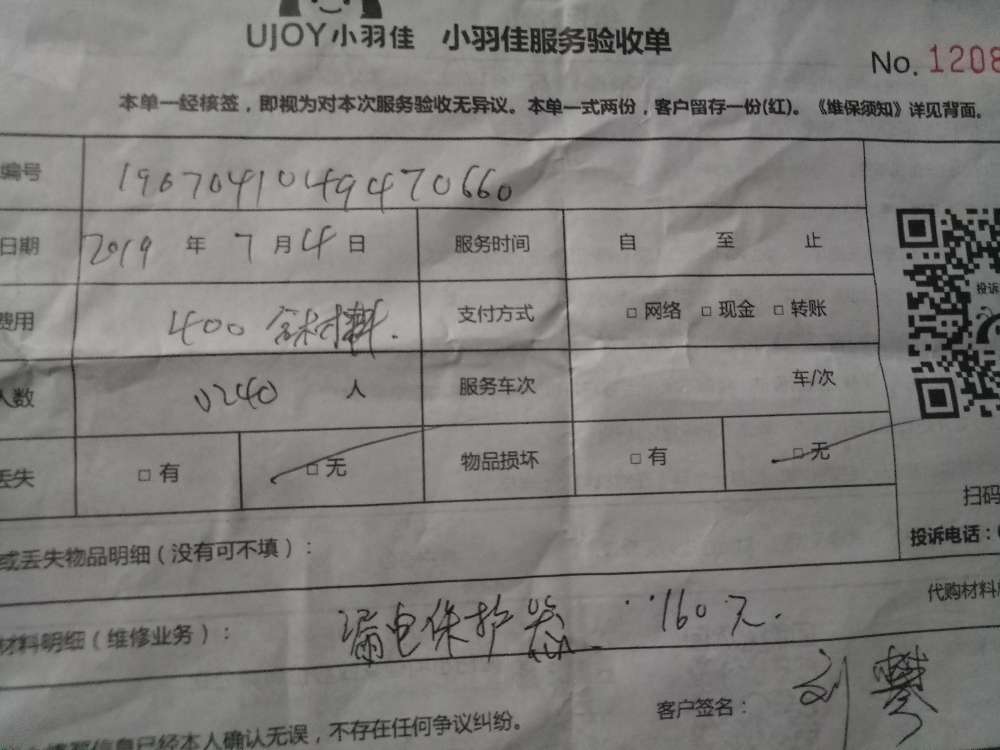 UJOY小羽佳 小羽佳服务验收单
No. 1208
本单一经核签，即视为对本次服务验收无异议。本单一式两份，客户留存一份(红)。《维保须知》详见背面。
编号 19070410494470660
日期 2019 年 7 月 4 日 服务时间 自 至 止
费用 400 含材料. 支付方式 □ 网络 □ 现金 □ 转账
人数 0240 人 服务车次 车/次
投诉
丢失 □ 有 □ 无 物品损坏 □ 有 □ 无
扫码
投诉电话：
或丢失物品明细（没有可不填）：
代购材料
材料明细（维修业务）： 漏电保护器 160元.
客户签名： 刘
信息已经本人确认无误，不存在任何争议纠纷。